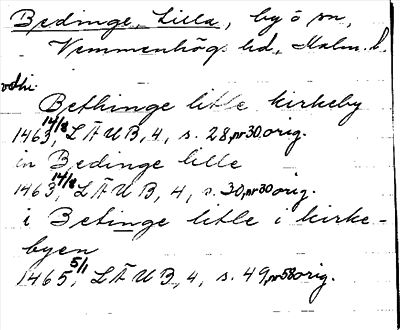 Bedinge, Lilla, by ö sn,
Vemmenhögs hd., Malm. l.
Bethinge litle kirkeby
1463 14/8, LÄUB, 4, s. 28, nr 30 orig.
in Bedinge lille
1463 14/8, LÄUB, 4, s. 30, nr 30 orig.
i Betinge litle i kirke-
byen
1465 5/1, LÄUB, 4, s. 49, nr 58 orig.